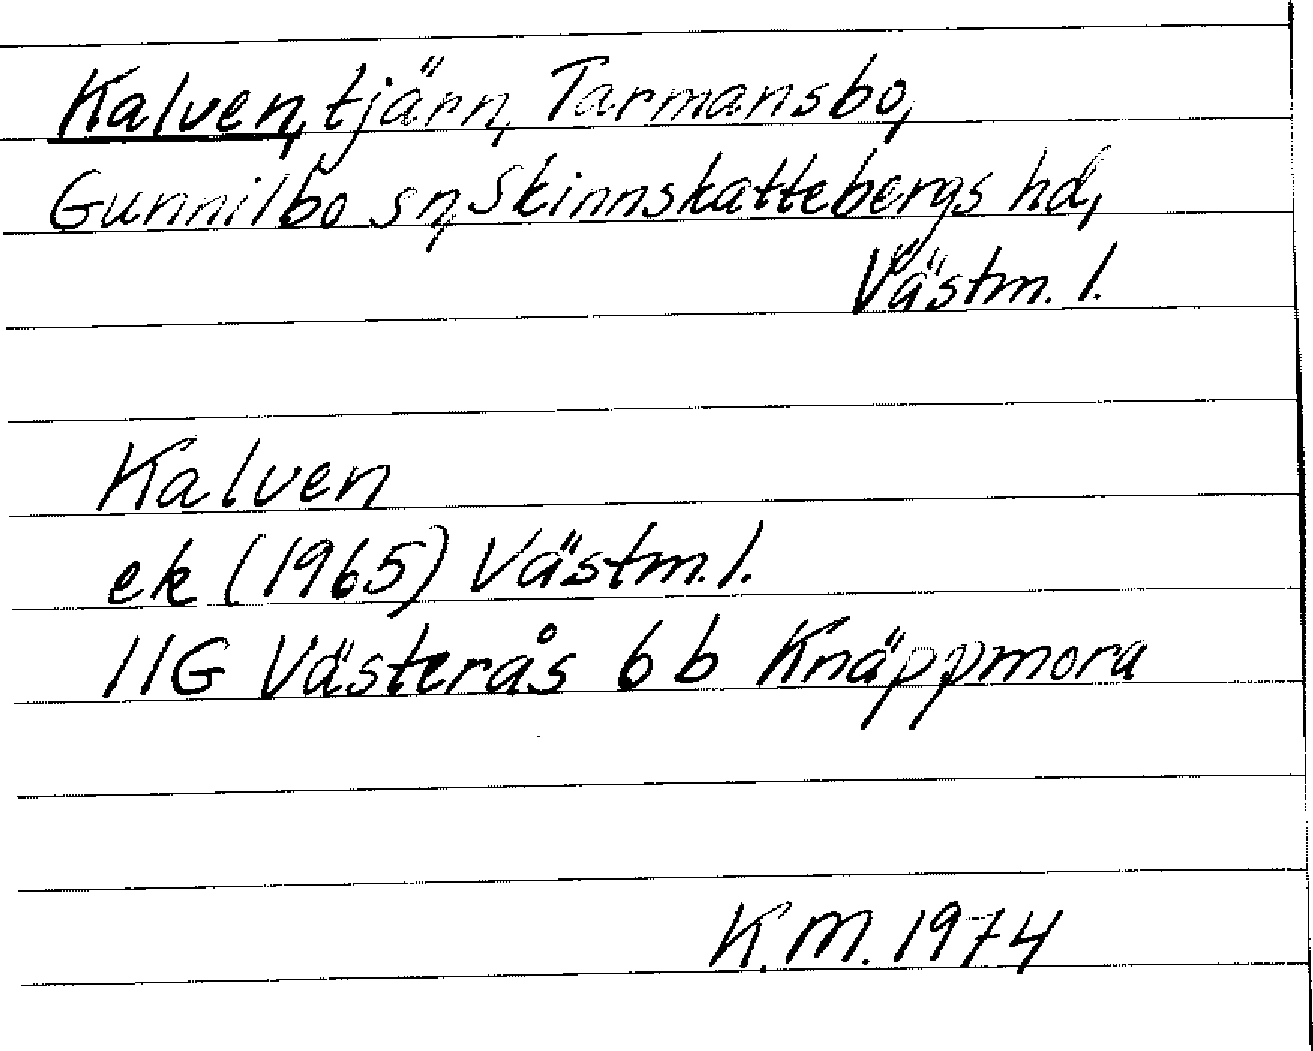 Kalven, tjärn, Tarmansbo,
Gunnilbo sn, Skinnskattebergs hd,
Västm. l.
Kalven
ek (1965) Västm. l.
11G Västerås 6 b Knäppmora
K.M. 1974